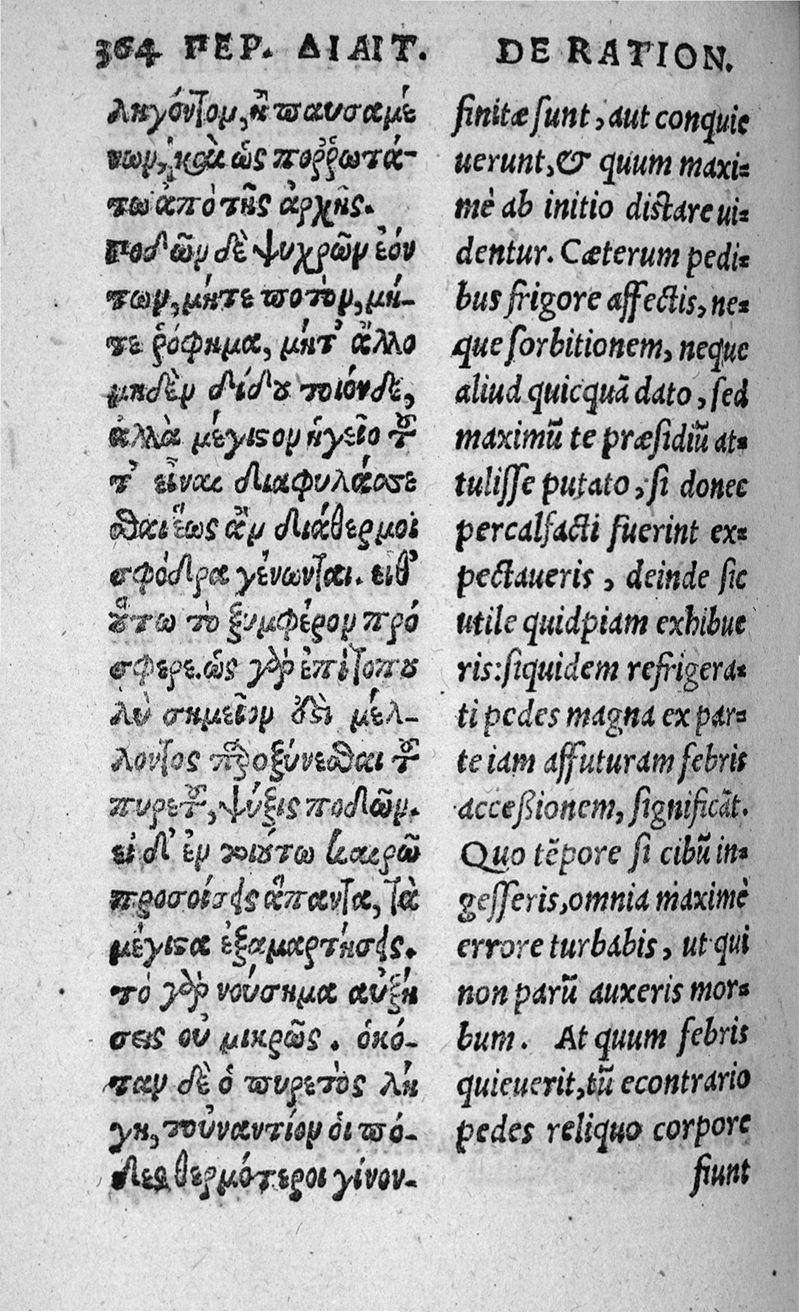 364 ΠΕΡ. ΔΙΑΙΤ.
ληγόντων, ἢ παυσαμέ
νων, καὶ ὡς ποῤῥωτά-
τω ἀπὸ τῆς ἀρχῆς.
Ποδῶν δὲ ψυχρῶν ἐόν
των, μήτε ποτὸν, μή-
τε ῥόφημα, μήτ' ἄλλο
μηδὲν δίδου τοιόνδε,
ἀλλὰ μέγιστον ἡγεῖο τοῦ
τ' εἶναι διαφυλάσσε
σθαι ἕως ἂν διάθερμοι
σφόδρα γένωνται. εἶθ'
οὕτω τὸ ξυμφέρον πρό
σφερε. ὡς γὰρ ἐπιτοπου
λὺ σημεῖον ὅδε μέλ-
λοντος παροξύνεσθαι τοῦ
πυρετοῦ, ψύξις ποδῶν.
εἰ δ' ἐν τοιούτω καιρῶ
προσοίσεις ἅπαντα, τὰ
μέγιστα ἐξαμαρτήσεις.
τὸ γὰρ νούσημα αὐξή
σεις οὐ μικρῶς. ὁκό-
ταν δὲ ὁ πυρετὸς λή
γη, τοὐναντίον οἱ πό-
δες θερμότεροι γίνον-
DE RATION.
finitæ sunt, aut conquie
uerunt, & quum maxi-
mè ab initio distare ui-
dentur. Cæterum pedi-
bus frigore affectis, ne-
que sorbitionem, neque
aliud quicquā dato, sed
maximū te præsidiū at-
tulisse putato, si donec
percalfacti fuerint ex-
pectaueris, deinde sic
utile quidpiam exhibue
ris: siquidem refrigera-
ti pedes magna ex par-
te iam affuturam febris
accessionem, significāt.
Quo tēpore si cibū in-
gesseris, omnia maximè
errore turbabis, ut qui
non parū auxeris mor-
bum. At quum febris
quieuerit, tū econtrario
pedes reliquo corpore
fiunt